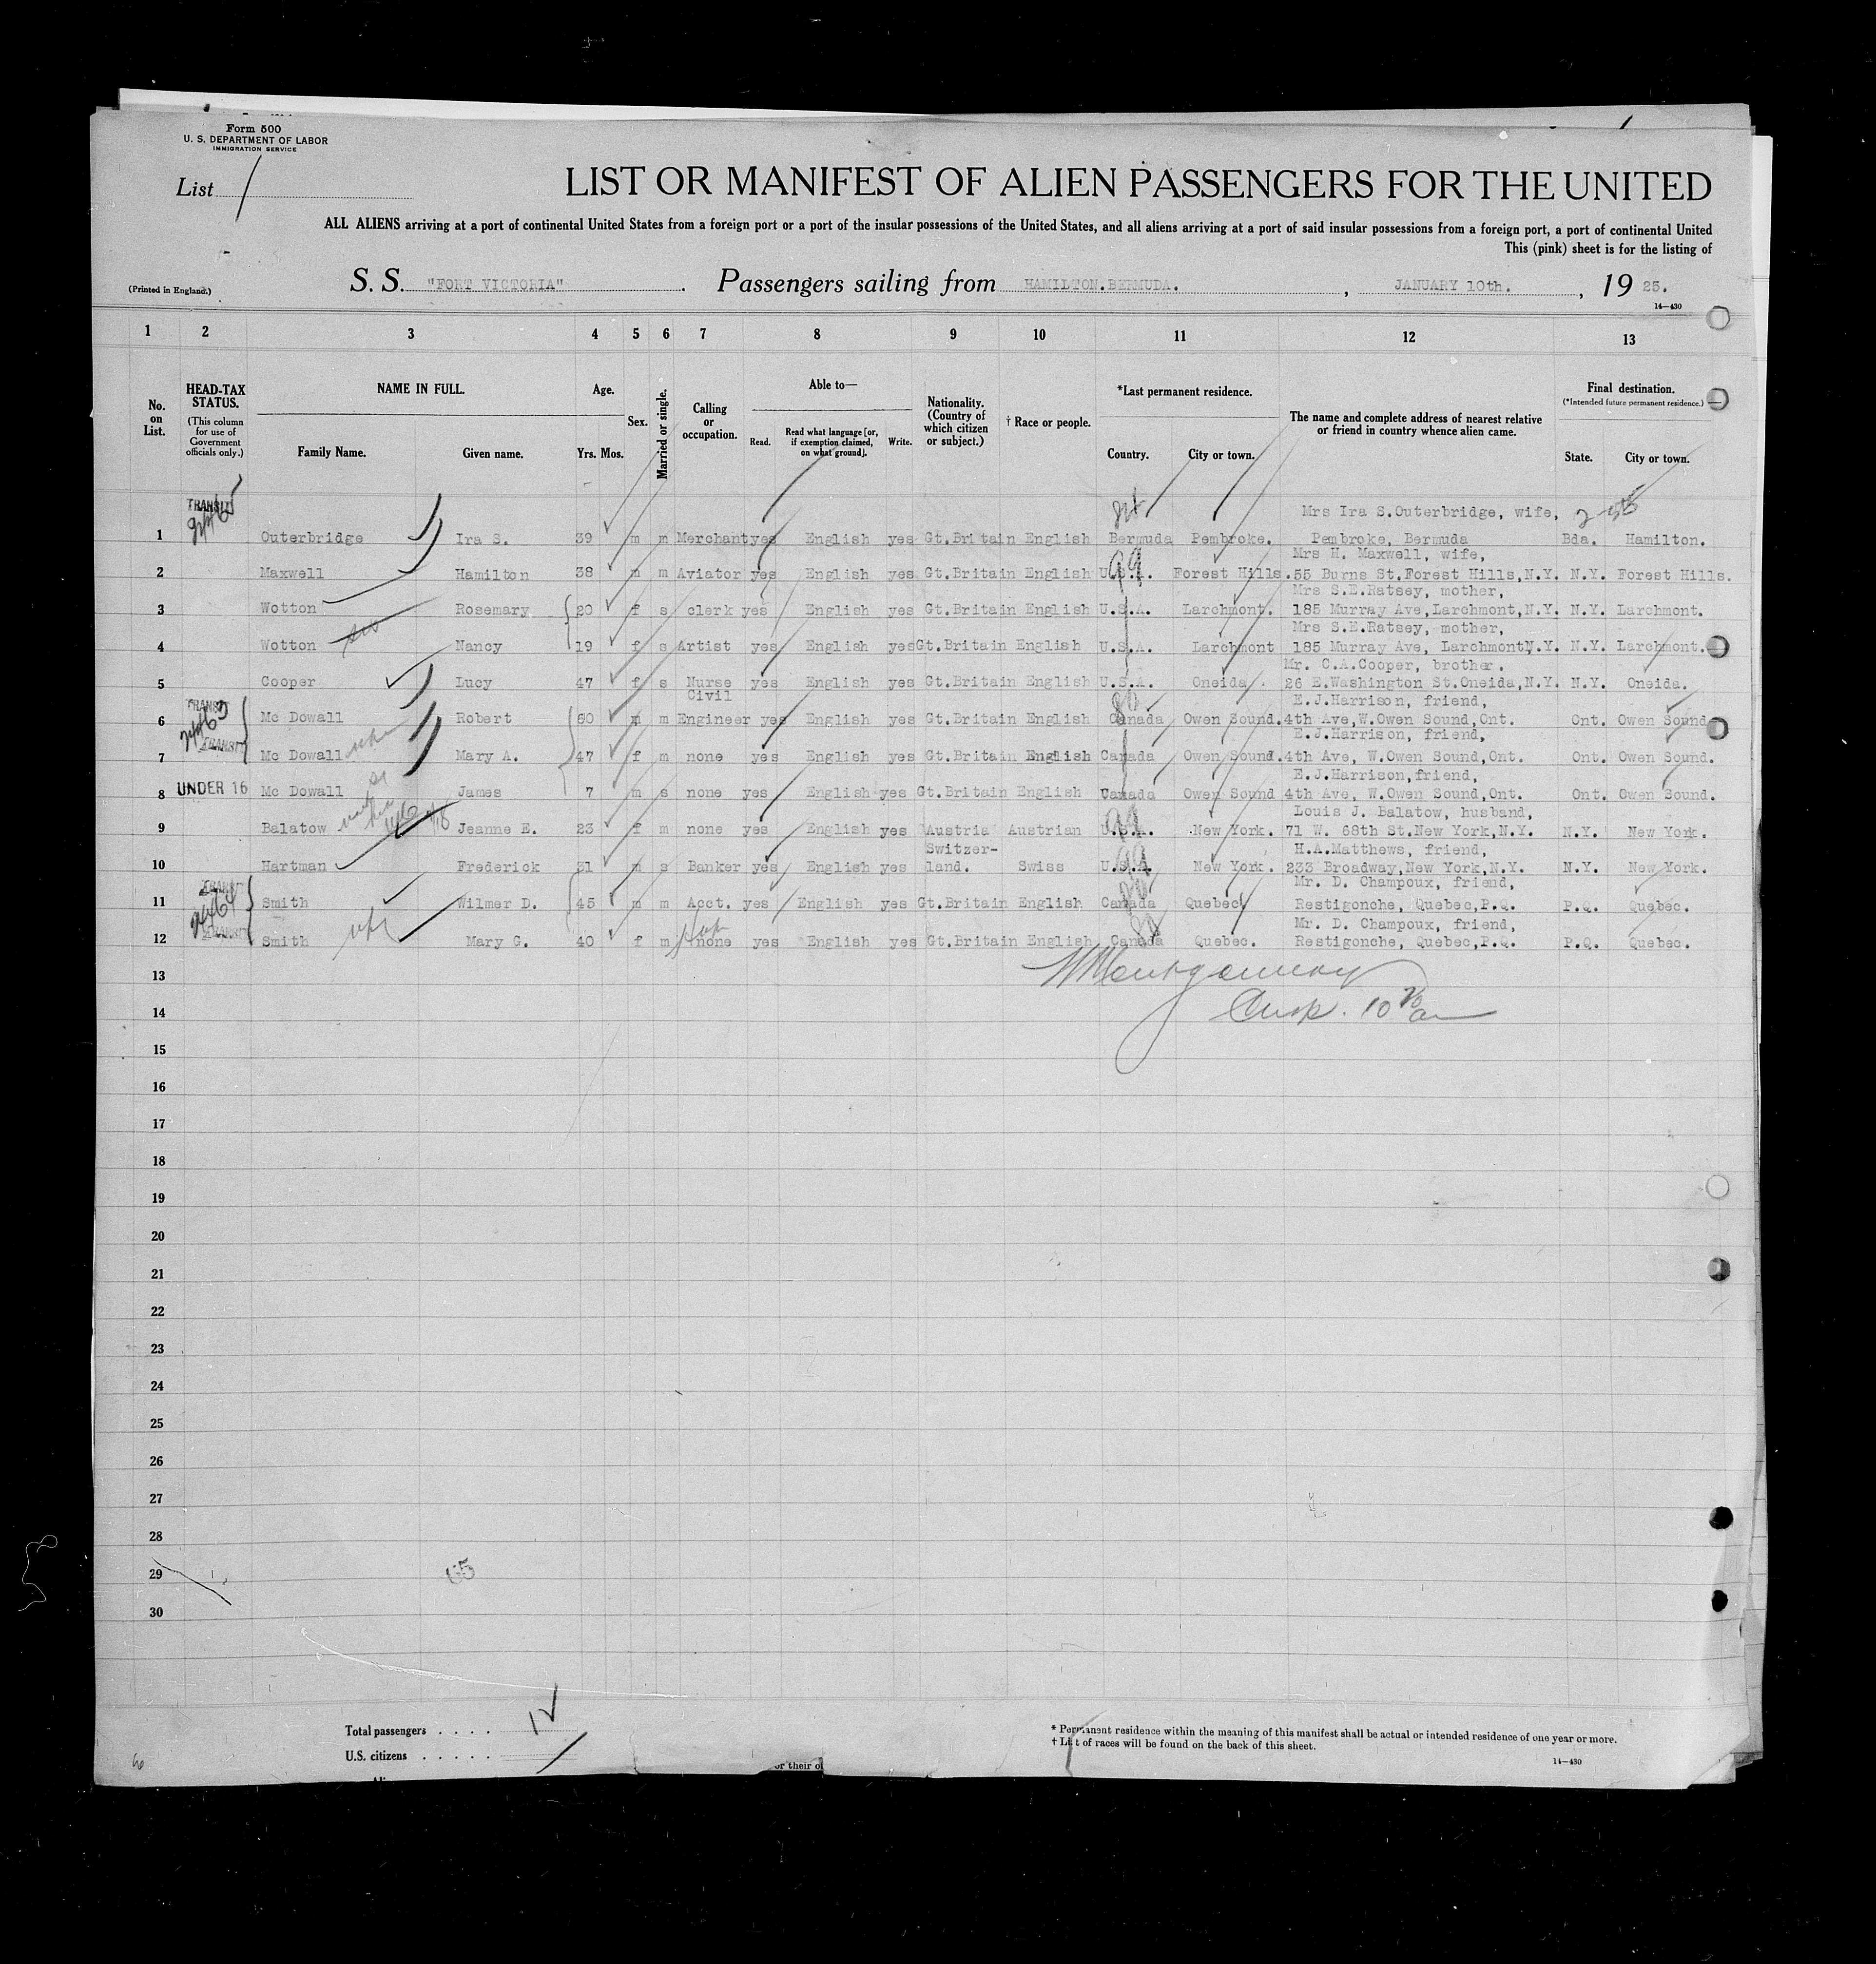 Form 500
U. S. DEPARTMENT OF LABOR
IMMIGRATION SERVICE
List 1
LIST OR MANIFEST OF ALIEN PASSENGERS FOR THE UNITED
ALL ALIENS arriving at a port of continental United States from a foreign port or a port of the insular possessions of the United States, and all aliens arriving at a port of said insular possessions from a foreign port, a port of continental United
This (pink) sheet is for the listing of
(Printed in England.) S. S. "FORT VICTORIA" . Passengers sailing from HAMILTON.BERMUDA. , JANUARY 10th. , 19 25.
14—430
1 2 3 4 5 6 7 8 9 10 11 12 13
No. on List. HEAD-TAX STATUS. (This column for use of Government officials only.) NAME IN FULL. Family Name. Given name. Age. Yrs. Mos. Sex. Married or single. Calling or occupation. Able to— Read. Read what language [or, if exemption claimed, on what ground]. Write. Nationality. (Country of which citizen or subject.) † Race or people. *Last permanent residence. Country. City or town. The name and complete address of nearest relative or friend in country whence alien came. Final destination. (*Intended future permanent residence.) State. City or town.
TRANSIT Mrs Ira S.Outerbridge, wife,
1 Outerbridge Ira S. 39 m m Merchant yes English yes Gt.Britain English Bermuda Pembroke. Pembroke, Bermuda Bda. Hamilton.
Mrs H. Maxwell, wife,
2 Maxwell Hamilton 38 m m Aviator yes English yes Gt.Britain English U.S.A. Forest Hills. 55 Burns St.Forest Hills,N.Y. N.Y. Forest Hills.
Mrs S.E.Ratsey, mother,
3 Wotton Rosemary 20 f s clerk yes English yes Gt.Britain English U.S.A. Larchmont. 185 Murray Ave,Larchmont,N.Y. N.Y. Larchmont.
Mrs S.E.Ratsey, mother,
4 Wotton Nancy 19 f s Artist yes English yes Gt.Britain English U.S.A. Larchmont 185 Murray Ave, Larchmont,N.Y. N.Y. Larchmont.
Mr. C.A.Cooper, brother.
5 Cooper Lucy 47 f s Nurse yes English yes Gt.Britain English U.S.A. Oneida. 26 E.Washington St.Oneida,N.Y. N.Y. Oneida.
TRANSIT Civil E.J.Harrison, friend,
6 Mc Dowall Robert 60 m m Engineer yes English yes Gt.Britain English Canada Owen Sound. 4th Ave,W.Owen Sound,Ont. Ont. Owen Sound
TRANSIT E.J.Harrison, friend,
7 Mc Dowall Mary A. 47 f m none yes English yes Gt.Britain English Canada Owen Sound. 4th Ave, W.Owen Sound,Ont. Ont. Owen Sound.
E.J.Harrison,friend,
8 UNDER 16 Mc Dowall James 7 m s none yes English yes Gt.Britain English Canada Owen Sound 4th Ave, W.Owen Sound,Ont. Ont. Owen Sound.
Louis J. Balatow, husband,
9 Balatow Jeanne E. 23 f m none yes English yes Austria Austrian U.S.A. New York. 71 W. 68th St.New York,N.Y. N.Y. New York.
Switzer- H.A.Matthews, friend,
10 Hartman Frederick 31 m s Banker yes English yes land. Swiss U.S.A. New York. 233 Broadway,New York,N.Y. N.Y. New York.
TRANSIT Mr. D. Champoux, friend,
11 Smith Wilmer D. 45 m m Acct. yes English yes Gt.Britain English Canada Quebec Restigonche, Quebec,P.Q. P.Q. Quebec.
TRANSIT Mr. D. Champoux, friend,
12 Smith Mary G. 40 f m none yes English yes Gt.Britain English Canada Quebec. Restigonche, Quebec,P.Q. P.Q. Quebec.
13
14
15
16
17
18
19
20
21
22
23
24
25
26
27
28
29
30
Total passengers . . . . 12
U.S. citizens . . . . .
* Permanent residence within the meaning of this manifest shall be actual or intended residence of one year or more.
† List of races will be found on the back of this sheet.
14—430
or their